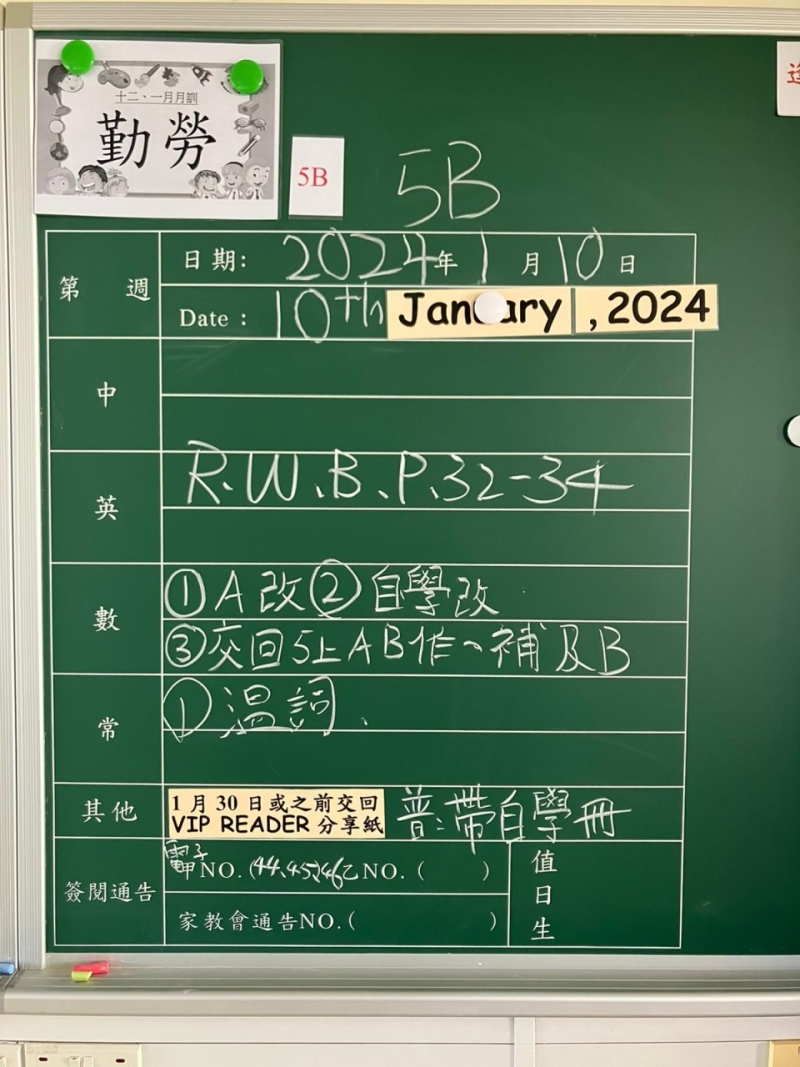 十二、一月月訓
勤勞
5B
5B
第 週
日期: 2024年1月10日
Date : 10th January , 2024
中
英
R.W.B.P.32-34
數
①A改②自學改
③交回5上AB作、補及B
常
①溫詞、
其他
1月30日或之前交回
VIP READER 分享紙
普:帶自學冊
簽閱通告
電子
甲NO.(44、45、46乙NO.( )
家教會通告NO.( )
值日生